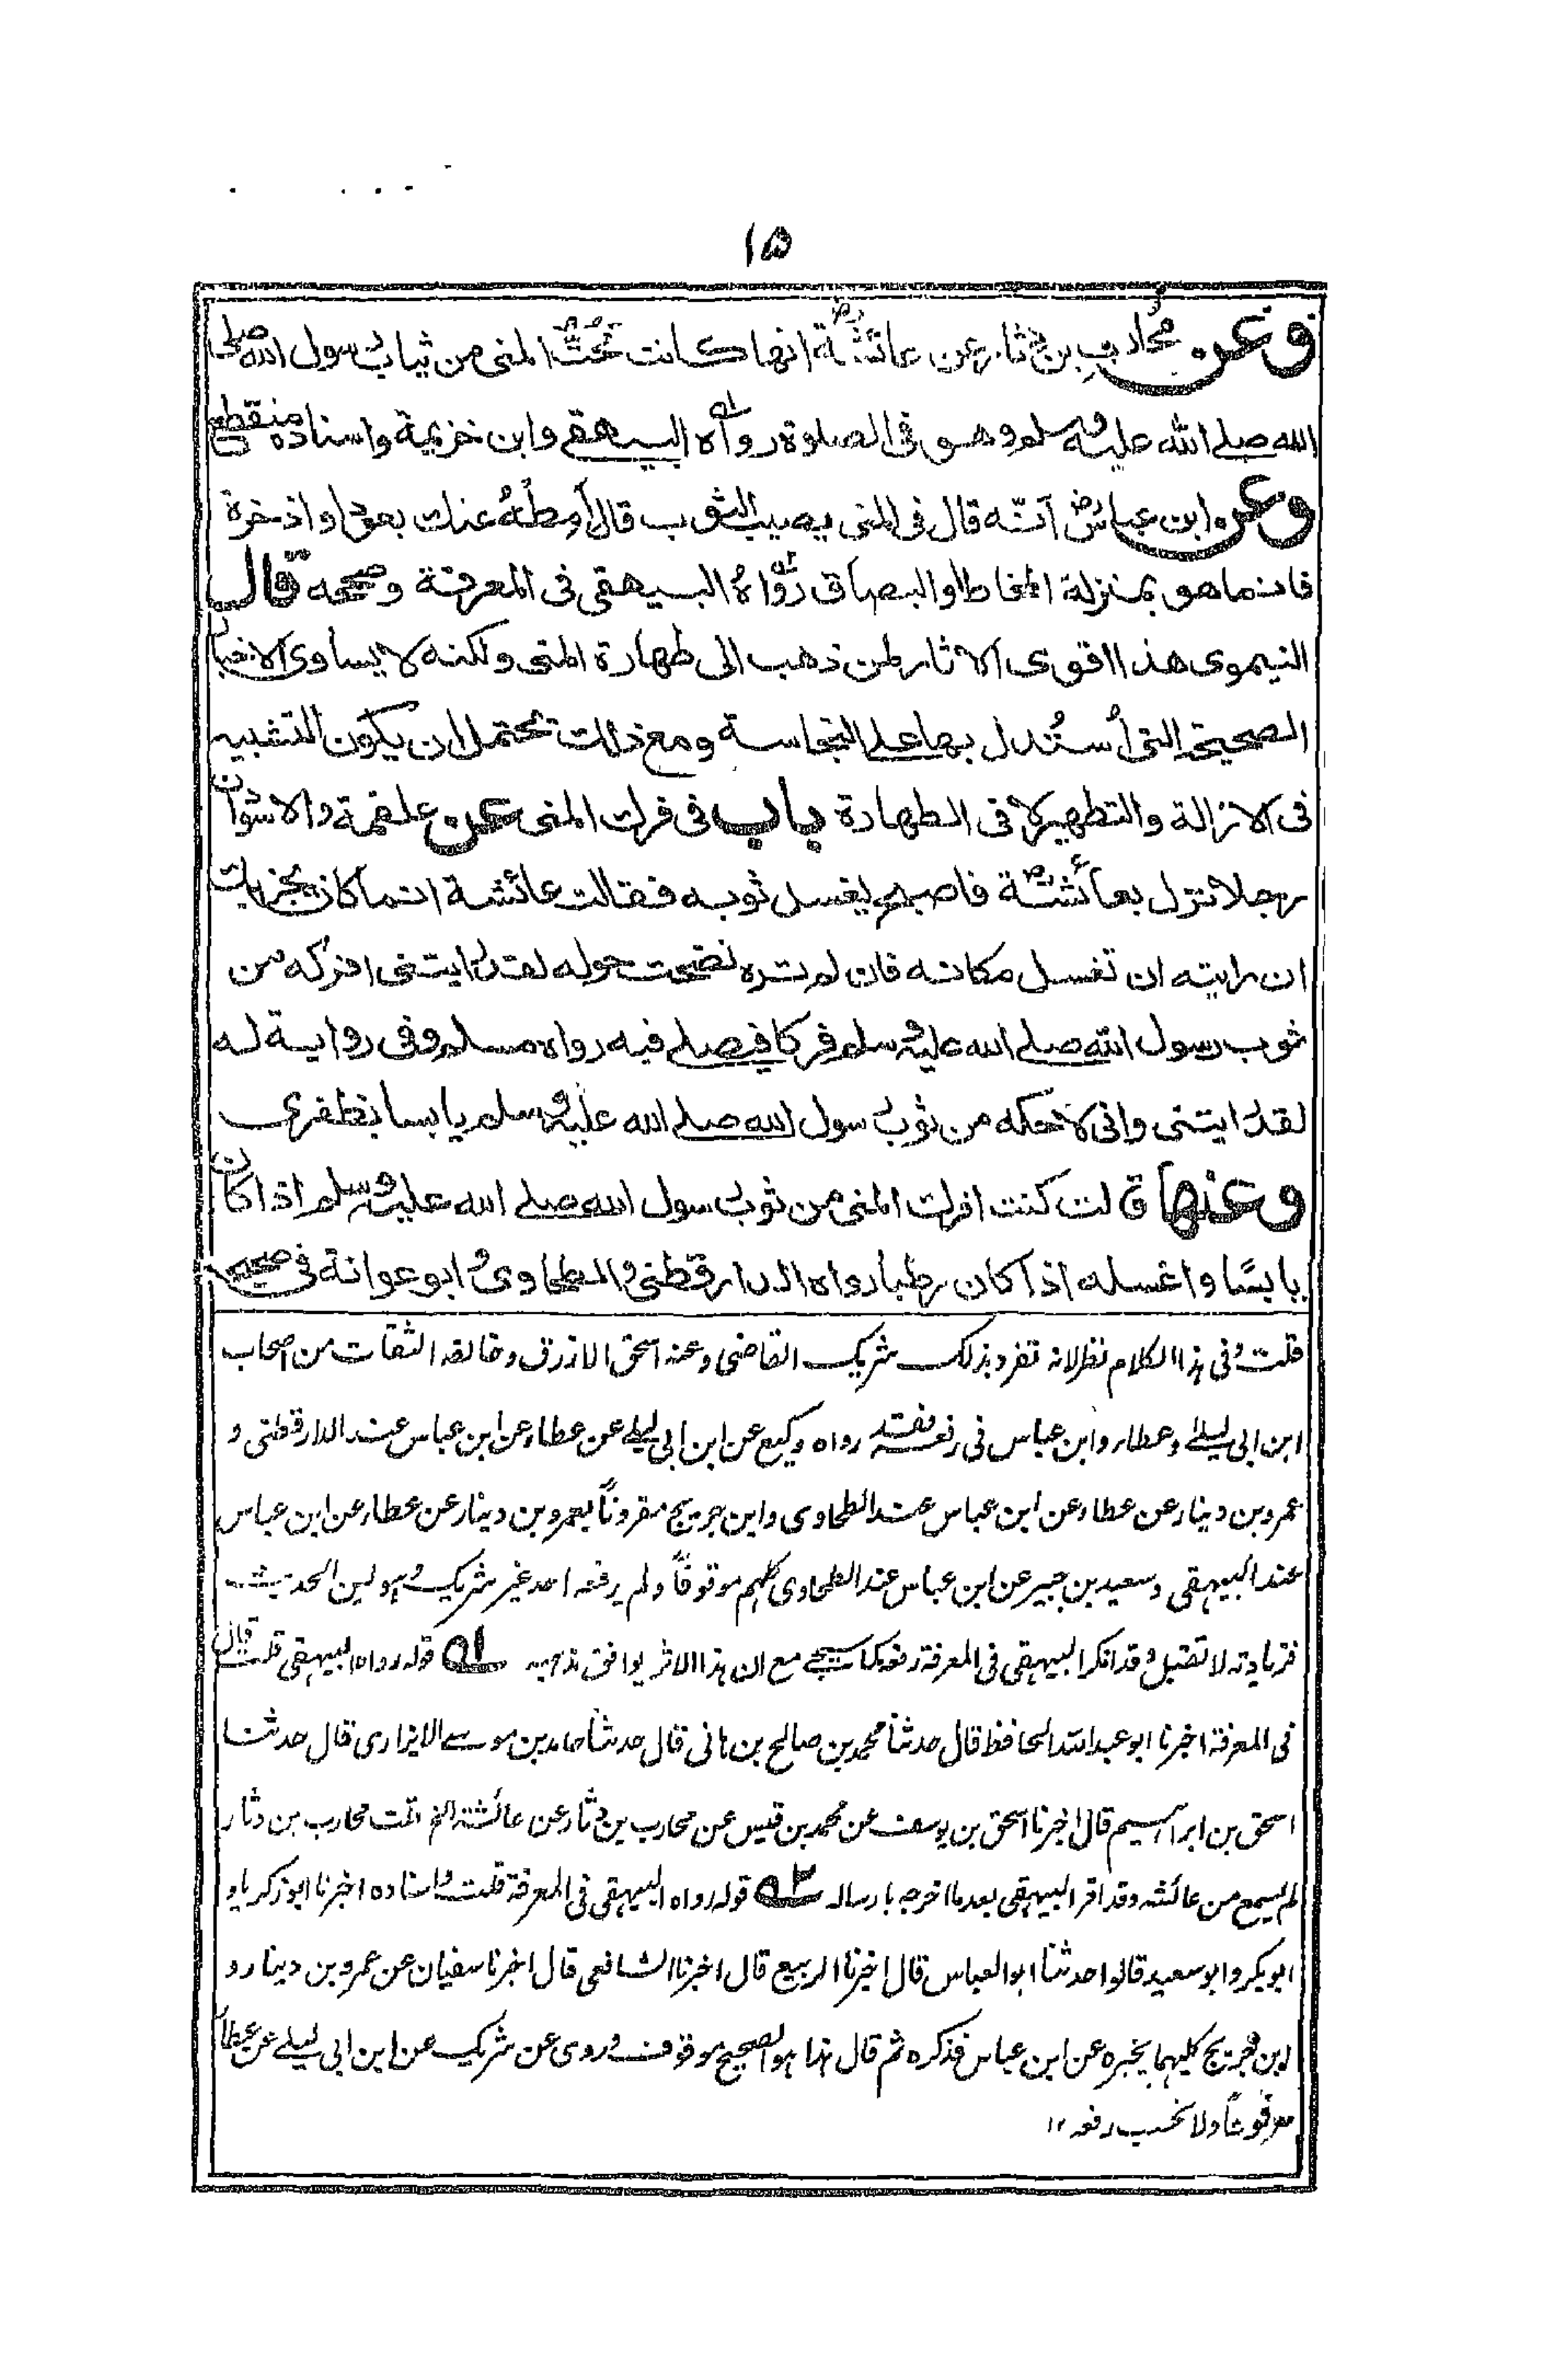 ١٥
وعن محارب بن دثار عن عائشة رض انها كانت تَحُتُّ المنى من ثياب رسول الله صلى
الله صلے الله عليه وسلم وهو فى الصلوة رواه له البيهقے وابن خزيمة واسناده منقطع
وعن ابن عباس رض انّه قال فى المنى يصيب الثوب قال اَمِطْهُ عنك بعود او اذخرة
فانما هو بمنزلة المخاط او البصاق رواهُ البيهقى فى المعرفة وصححه قال
النيموى هذا اقوى الاثار لمن ذهب الى طهارة المنى ولكنه لا يساوى الاخبار
الصحيحة التى اُستُدل بها على النجاسة ومع ذلك يحتمل ان يكون التشبيه
فى الازالة والتطهير لا فى الطهارة باب فى فرك المنى عن علقمة والاسود ان
رجلا نزل بعائشة رض فاصبح يغسل ثوبه فقالت عائشة انما كان يجزيك
ان رايته ان تغسل مكانه فان لم تره نضحت حوله لقد رايتنى افركه من
ثوب رسول الله صلے الله عليه وسلم فركا فيصلے فيه رواه مسلم وفى رواية له
لقد رايتنى وانى لاحكه من ثوب رسول الله صلے الله عليه وسلم يابسا بظفرى
وعنها قالت كنت افرك المنى من ثوب رسول الله صلے الله عليه وسلم اذا كان
يابسًا واغسله اذا كان رطبا رواه الدارقطنى والطحاوى وابو عوانة فى صحيحه
قلت وفى هذا الكلام نظر لانه تفرد بذلك شريك القاضى وعنه اسحق الازرق وخالفه الثقات من اصحاب
ابن ابى ليلے وعطاء وابن عباس فى رفعه رواه وكيع عن ابن ابى ليلے عن عطاء عن ابن عباس عند الدارقطنى و
عمرو بن دينار عن عطاء عن ابن عباس عند الطحاوى وابن جريج مقروناً بعمرو بن دينار عن عطاء عن ابن عباس
عند البيهقى وسعيد بن جبير عن ابن عباس عند الطحاوى كلهم موقوفاً ولم يرفعه احد غير شريك وهو لين الحديث
فزيادته لا تقبل وقد انكر البيهقى فى المعرفة رفعه كما سيجئ مع ان هذا الاثر يوافق مذهبه ١ه قوله رواه البيهقى قلت قال
فى المعرفة اخبرنا ابو عبد الله الحافظ قال حدثنا محمد بن صالح بن هانى قال حدثنا حامد بن موسے الابزارى قال حدثنا
اسحق بن ابراهيم قال اخبرنا اسحق بن يوسف عن محمد بن قيس عن محارب بن دثار عن عائشة الخ قلت محارب بن دثار
لم يسمع من عائشه وقد اقر البيهقى بعد ما اخرجه بارساله ٢ه قوله رواه البيهقى فى المعرفة قلت واسناده اخبرنا ابو زكريا و
ابو بكر وابو سعيد قالوا حدثنا ابو العباس قال اخبرنا الربيع قال اخبرنا الشافعى قال اخبرنا سفيان عن عمرو بن دينار و
ابن جريج كليهما يخبره عن ابن عباس فذكره ثم قال هذا هو الصحيح موقوف وروى عن شريك عن ابن ابى ليلے عن عطاء
مرفوعاً ولا يحسب رفعه ١٢